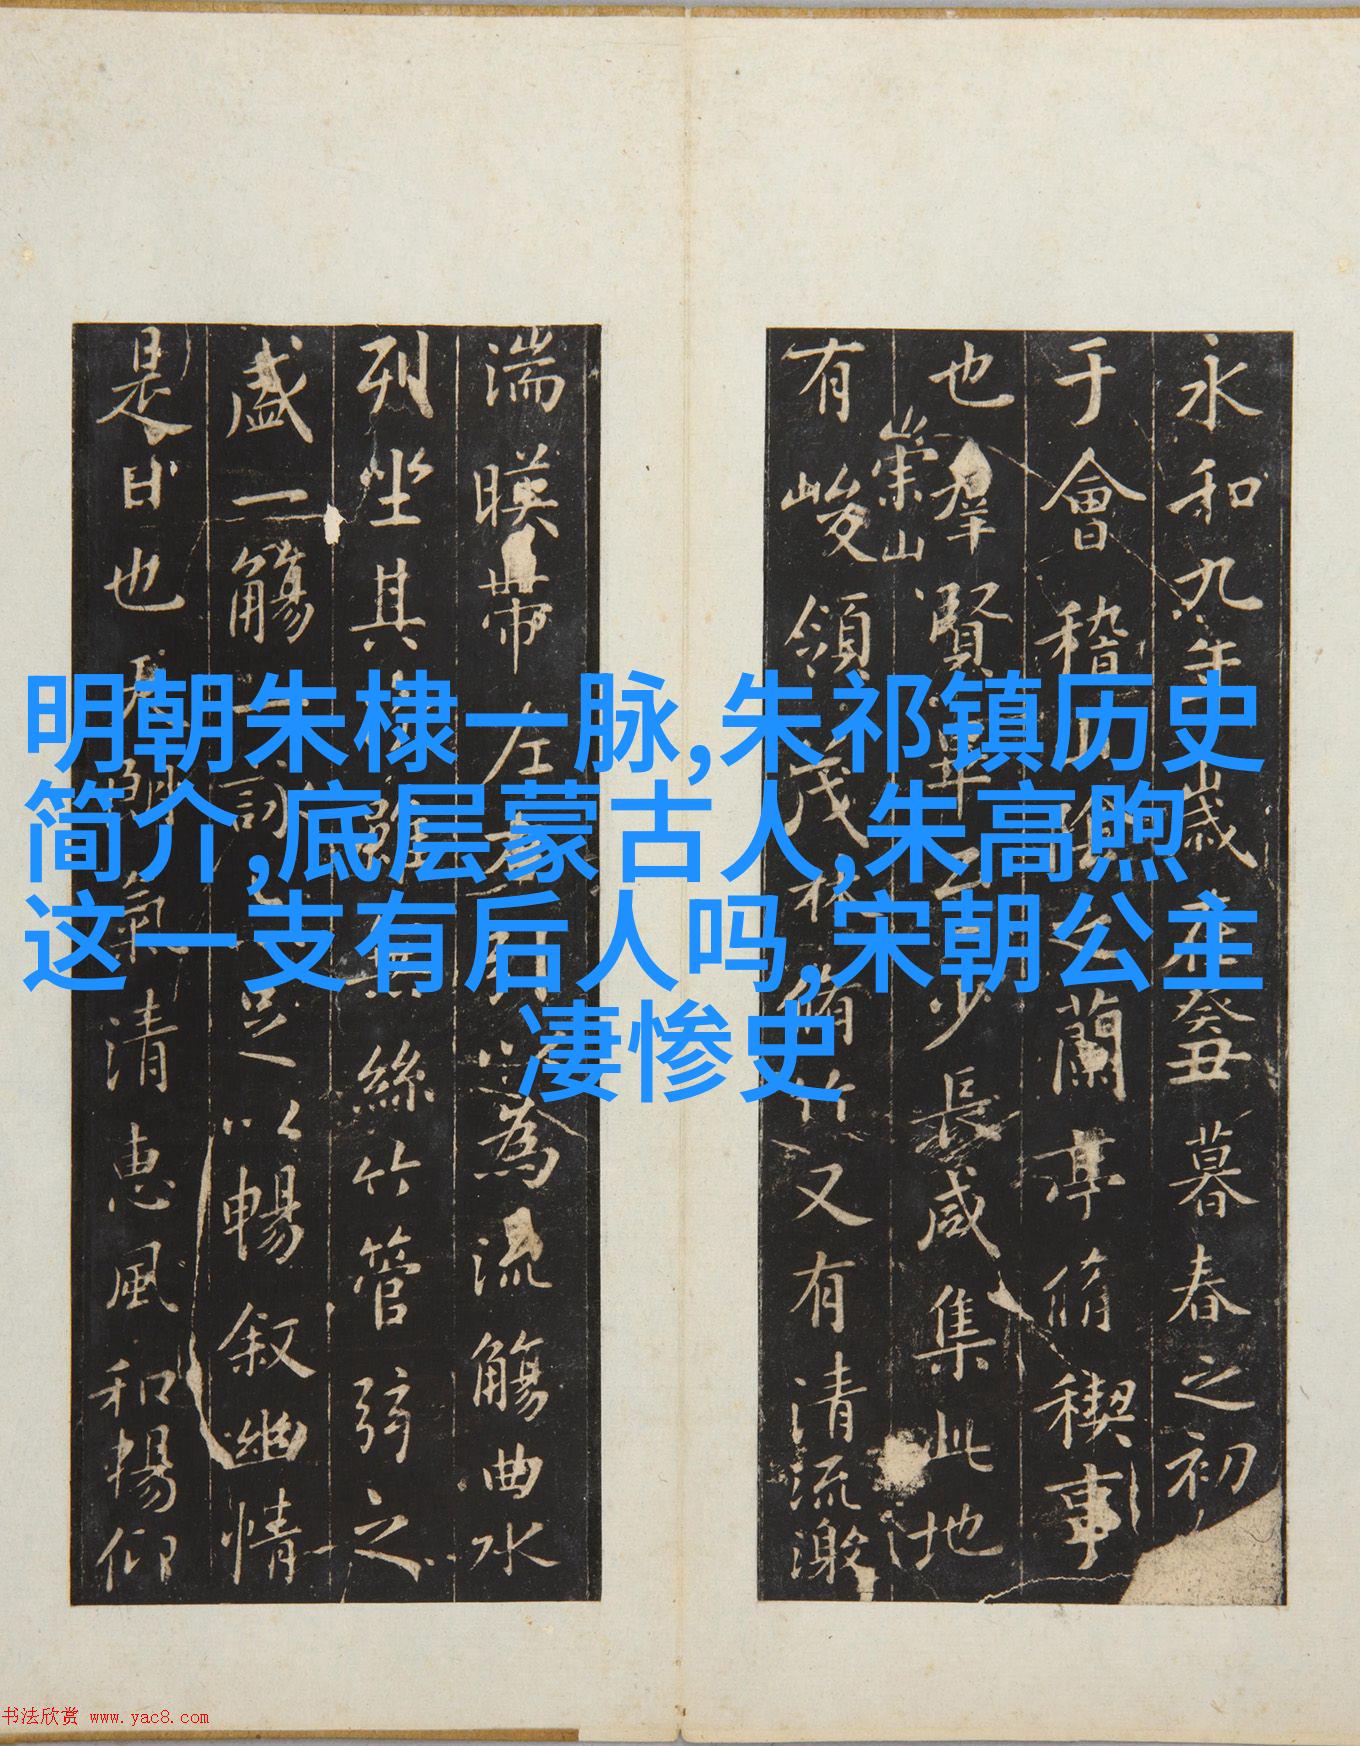 明朝朱棣一脉,朱祁镇历史
简介,底层蒙古人,朱高煦
这一支有后人吗,宋朝公主
凄惨史
永和九年歲在癸丑暮春之初
于會稽山陰之蘭亭脩禊事
也群賢畢至少長咸集此地
崇山
有峻領茂林脩竹又有清流激
湍暎帶左右引以為流觴曲水
列坐其次雖無絲竹管弦之
盛一觴一詠亦足以暢叙幽情
是日也天朗氣清惠風和暢仰
书法欣赏 www.yac8.com